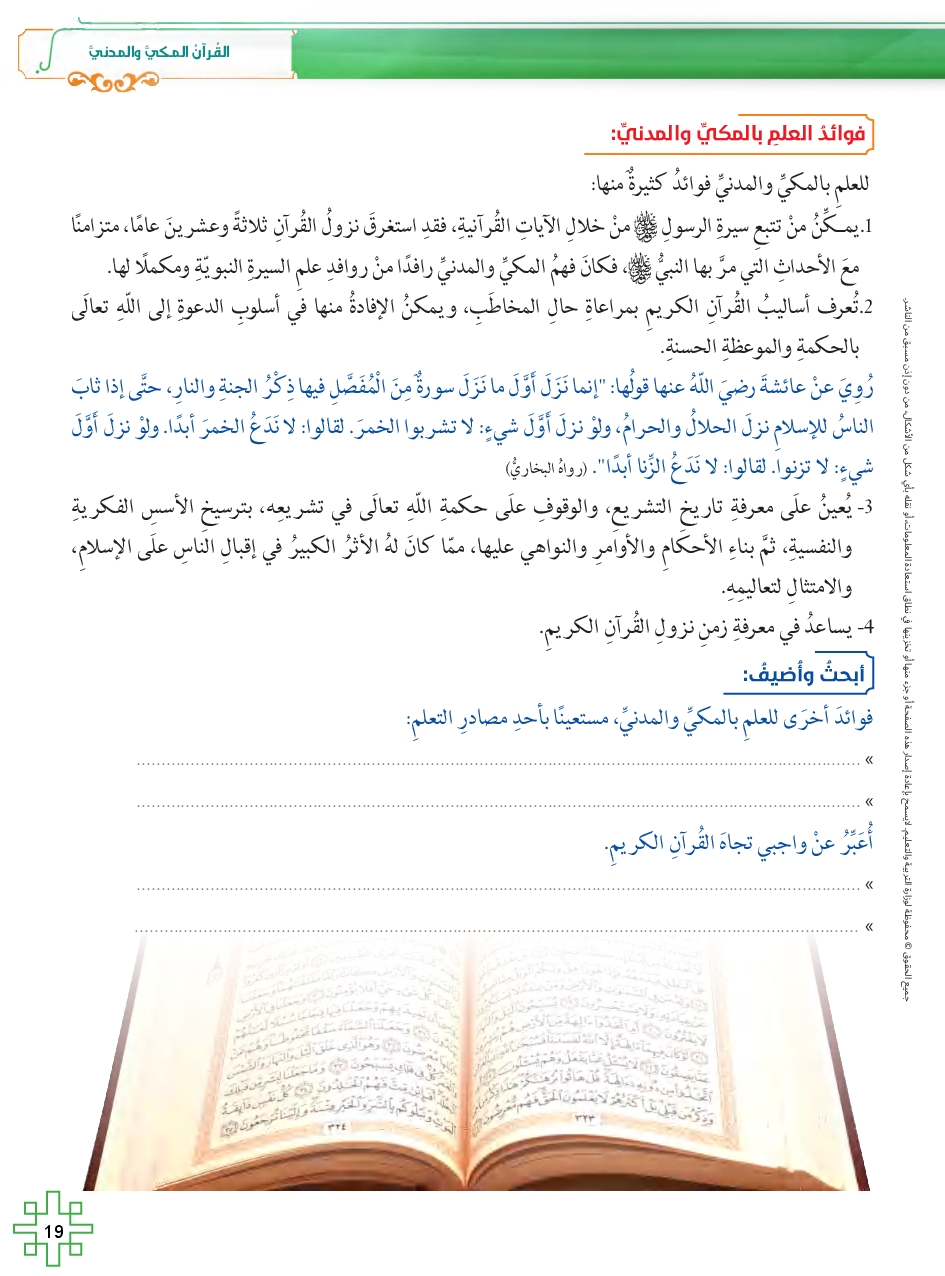 القُرآنُ المكيُّ والمدنيُّ
فوائدُ العلمِ بالمكيِّ والمدنيِّ:
للعلمِ بالمكيِّ والمدنيِّ فوائدُ كثيرةٌ منها:
1.يمكِّنُ منْ تتبعِ سيرةِ الرسولِ ﷺ منْ خلالِ الآياتِ القُرآنيةِ، فقدِ استغرقَ نزولُ القُرآنِ ثلاثةً وعشرينَ عامًا، متزامنًا
معَ الأحداثِ التي مرَّ بها النبيُّ ﷺ، فكانَ فهمُ المكيِّ والمدنيِّ رافدًا منْ روافدِ علمِ السيرةِ النبويّةِ ومكملًا لها.
2.تُعرف أساليبُ القُرآنِ الكريمِ بمراعاةِ حالِ المخاطَبِ، ويمكنُ الإفادةُ منها في أسلوبِ الدعوةِ إلى اللّهِ تعالَى
بالحكمةِ والموعظةِ الحسنةِ.
رُوِيَ عنْ عائشةَ رضيَ اللّهُ عنها قولُها: "إنما نَزَلَ أَوَّلَ ما نَزَلَ سورةٌ مِنَ الْمُفَصَّلِ فيها ذِكْرُ الجنةِ والنارِ، حتَّى إذا ثابَ
الناسُ للإسلامِ نزلَ الحلالُ والحرامُ، ولوْ نزلَ أَوَّلَ شيءٍ: لا تشربوا الخمرَ. لقالوا: لا نَدَعُ الخمرَ أبدًا. ولوْ نزلَ أَوَّلَ
شيءٍ: لا تزنوا. لقالوا: لا نَدَعُ الزِّنا أبدًا". (رواهُ البخاريُّ)
3- يُعينُ علَى معرفةِ تاريخِ التشريعِ، والوقوفِ علَى حكمةِ اللّهِ تعالَى في تشريعِه، بترسيخِ الأسسِ الفكريةِ
والنفسيةِ، ثمَّ بناءِ الأحكامِ والأوامرِ والنواهي عليها، ممّا كانَ لهُ الأثرُ الكبيرُ في إقبالِ الناسِ علَى الإسلامِ،
والامتثالِ لتعاليمِهِ.
4- يساعدُ في معرفةِ زمنِ نزولِ القُرآنِ الكريمِ.
أبحثُ وأضيفُ:
فوائدَ أخرَى للعلمِ بالمكيِّ والمدنيِّ، مستعينًا بأحدِ مصادرِ التعلمِ:
«
«
أُعَبِّرُ عنْ واجبي تجاهَ القُرآنِ الكريمِ.
«
«
جميع الحقوق © محفوظة لوزارة التربية والتعليم. لا يسمح بإعادة إصدار هذه الصفحة أو جزء منها أو تخزينها في نطاق استعادة المعلومات، أو نقله بأي شكل من الأشكال، من دون إذن مسبق من الناشر.
٣٢٤
٣٢٣
19